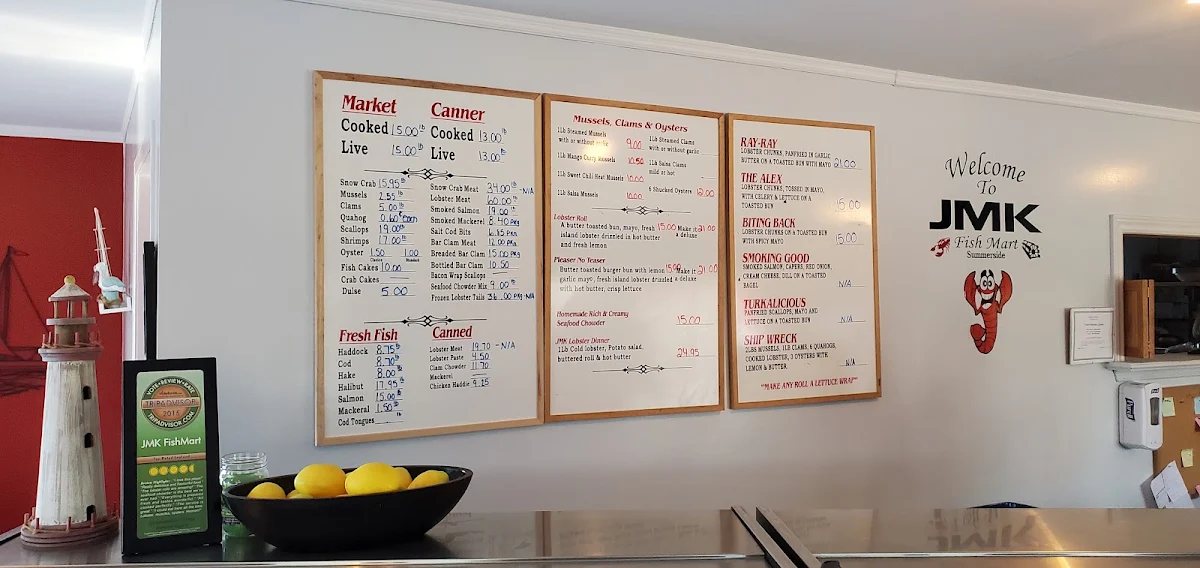 Market Canner
Cooked 15.00 lb Cooked 13.00 lb
Live 15.00 lb Live 13.00 lb
Snow Crab 15.95 lb
Mussels 2.55 lb
Clams 5.00 lb
Quahog 0.60
Scallops 19.00 lb
Shrimps 17.00 lb
Oyster 1.50 1.00
Fish Cakes 10.00
Crab Cakes
Dulse 5.00
Snow Crab Meat 34.00 lb -N/A
Lobster Meat 60.00 lb
Smoked Salmon 19.00 lb
Smoked Mackerel 8.40 pkg
Salt Cod Bits 6.85 pkg
Bar Clam Meat 12.00 pkg
Breaded Bar Clam 15.00 pkg
Bottled Bar Clam 10.50
Bacon Wrap Scallops
Seafood Chowder Mix 9.00 lb
Frozen Lobster Tails 36.00 pkg -N/A
Fresh Fish
Haddock 8.75 lb
Cod 8.70 lb
Hake 8.00 lb
Halibut 17.95 lb
Salmon 15.00 lb
Mackeral 1.50 lb
Cod Tongues lb
Canned
Lobster Meat 19.70 -N/A
Lobster Paste 4.50
Clam Chowder 11.70
Mackerel
Chicken Haddie 9.25
Mussels, Clams & Oysters
1Lb Steamed Mussels
with or without garlic 9.00
1Lb Mango Curry Mussels 10.50
1Lb Sweet Chili Heat Mussels 10.00
1Lb Salsa Mussels 10.00
1Lb Steamed Clams
with or without garlic
1Lb Salsa Clams
mild or hot
6 Shucked Oysters 12.00
Lobster Roll
A butter toasted bun, mayo, fresh 15.00 Make it 21.00
island lobster drizzled in hot butter a deluxe
and fresh lemon
Pleaser No Teaser
Butter toasted burger bun with lemon 15.00 Make it 21.00
garlic mayo, fresh island lobster drizzled a deluxe
with hot butter, crisp lettuce
Homemade Rich & Creamy
Seafood Chowder 15.00
JMK Lobster Dinner
1Lb Cold lobster, Potato salad, 24.95
buttered roll & hot butter
RAY-RAY
LOBSTER CHUNKS, PANFRIED IN GARLIC
BUTTER ON A TOASTED BUN WITH MAYO 21.00
THE ALEX
LOBSTER CHUNKS, TOSSED IN MAYO,
WITH CELERY & LETTUCE ON A
TOASTED BUN 15.00
BITING BACK
LOBSTER CHUNKS ON A TOASTED BUN
WITH SPICY MAYO 15.00
SMOKING GOOD
SMOKED SALMON, CAPERS, RED ONION,
CREAM CHEESE, DILL ON A TOASTED
BAGEL N/A
TURKALICIOUS
PANFRIED SCALLOPS, MAYO AND
LETTUCE ON A TOASTED BUN N/A
SHIP WRECK
2LBS MUSSELS, 1LB CLAMS, 4 QUAHOGS,
COOKED LOBSTER, 3 OYSTERS WITH
LEMON & BUTTER. N/A
"MAKE ANY ROLL A LETTUCE WRAP"
Welcome
To
JMK
Fish Mart
Summerside
VOTE•REVIEW•RATE
TRIPADVISOR
2015
TRIPADVISOR.COM
JMK FishMart
PURELL